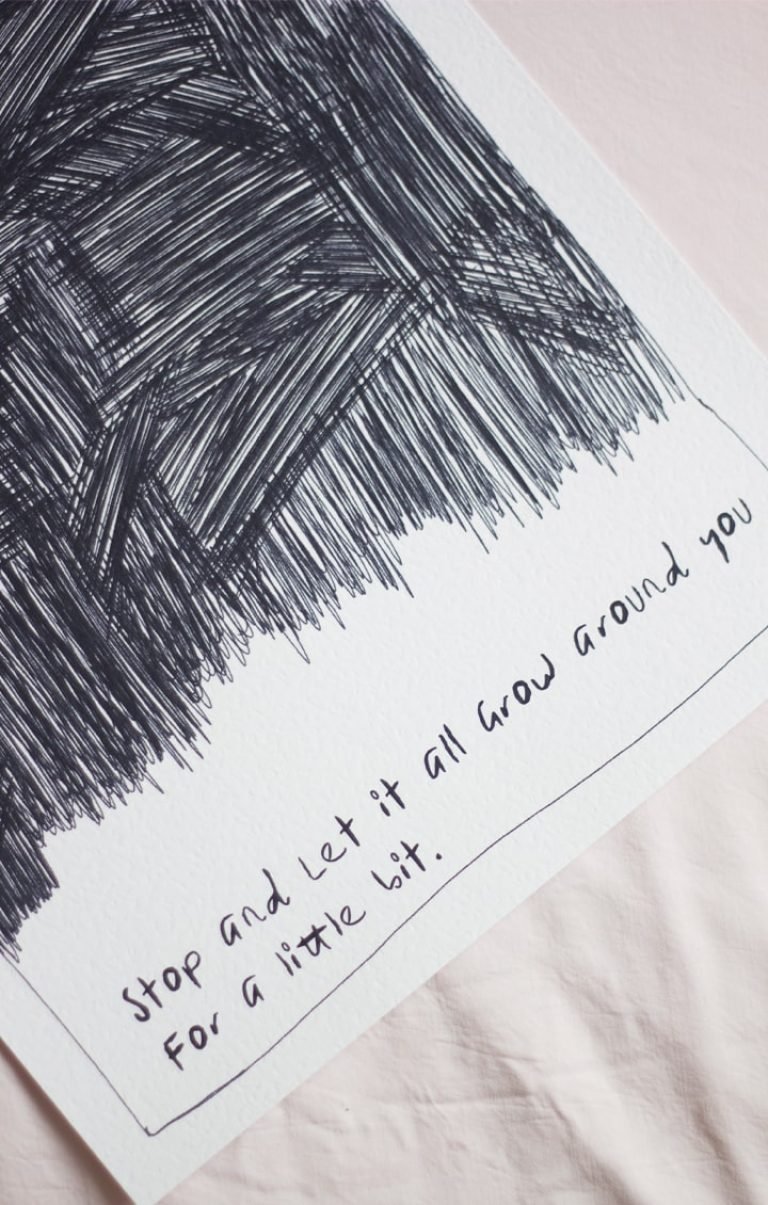 Stop and Let it all grow around you
For a little bit.